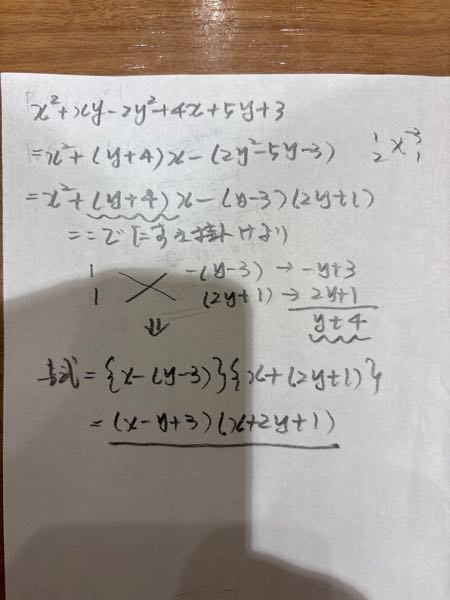 x²+xy-2y²+4x+5y+3
=x²+(y+4)x-(2y²-5y-3)
1 -3
2 1
=x²+(y+4)x-(y-3)(2y+1)
==で「たすき掛けより
1 -(y-3) → -y+3
1 (2y+1) → 2y+1
y+4
⇓
与式={x-(y-3)}{x+(2y+1)}
=(x-y+3)(x+2y+1)